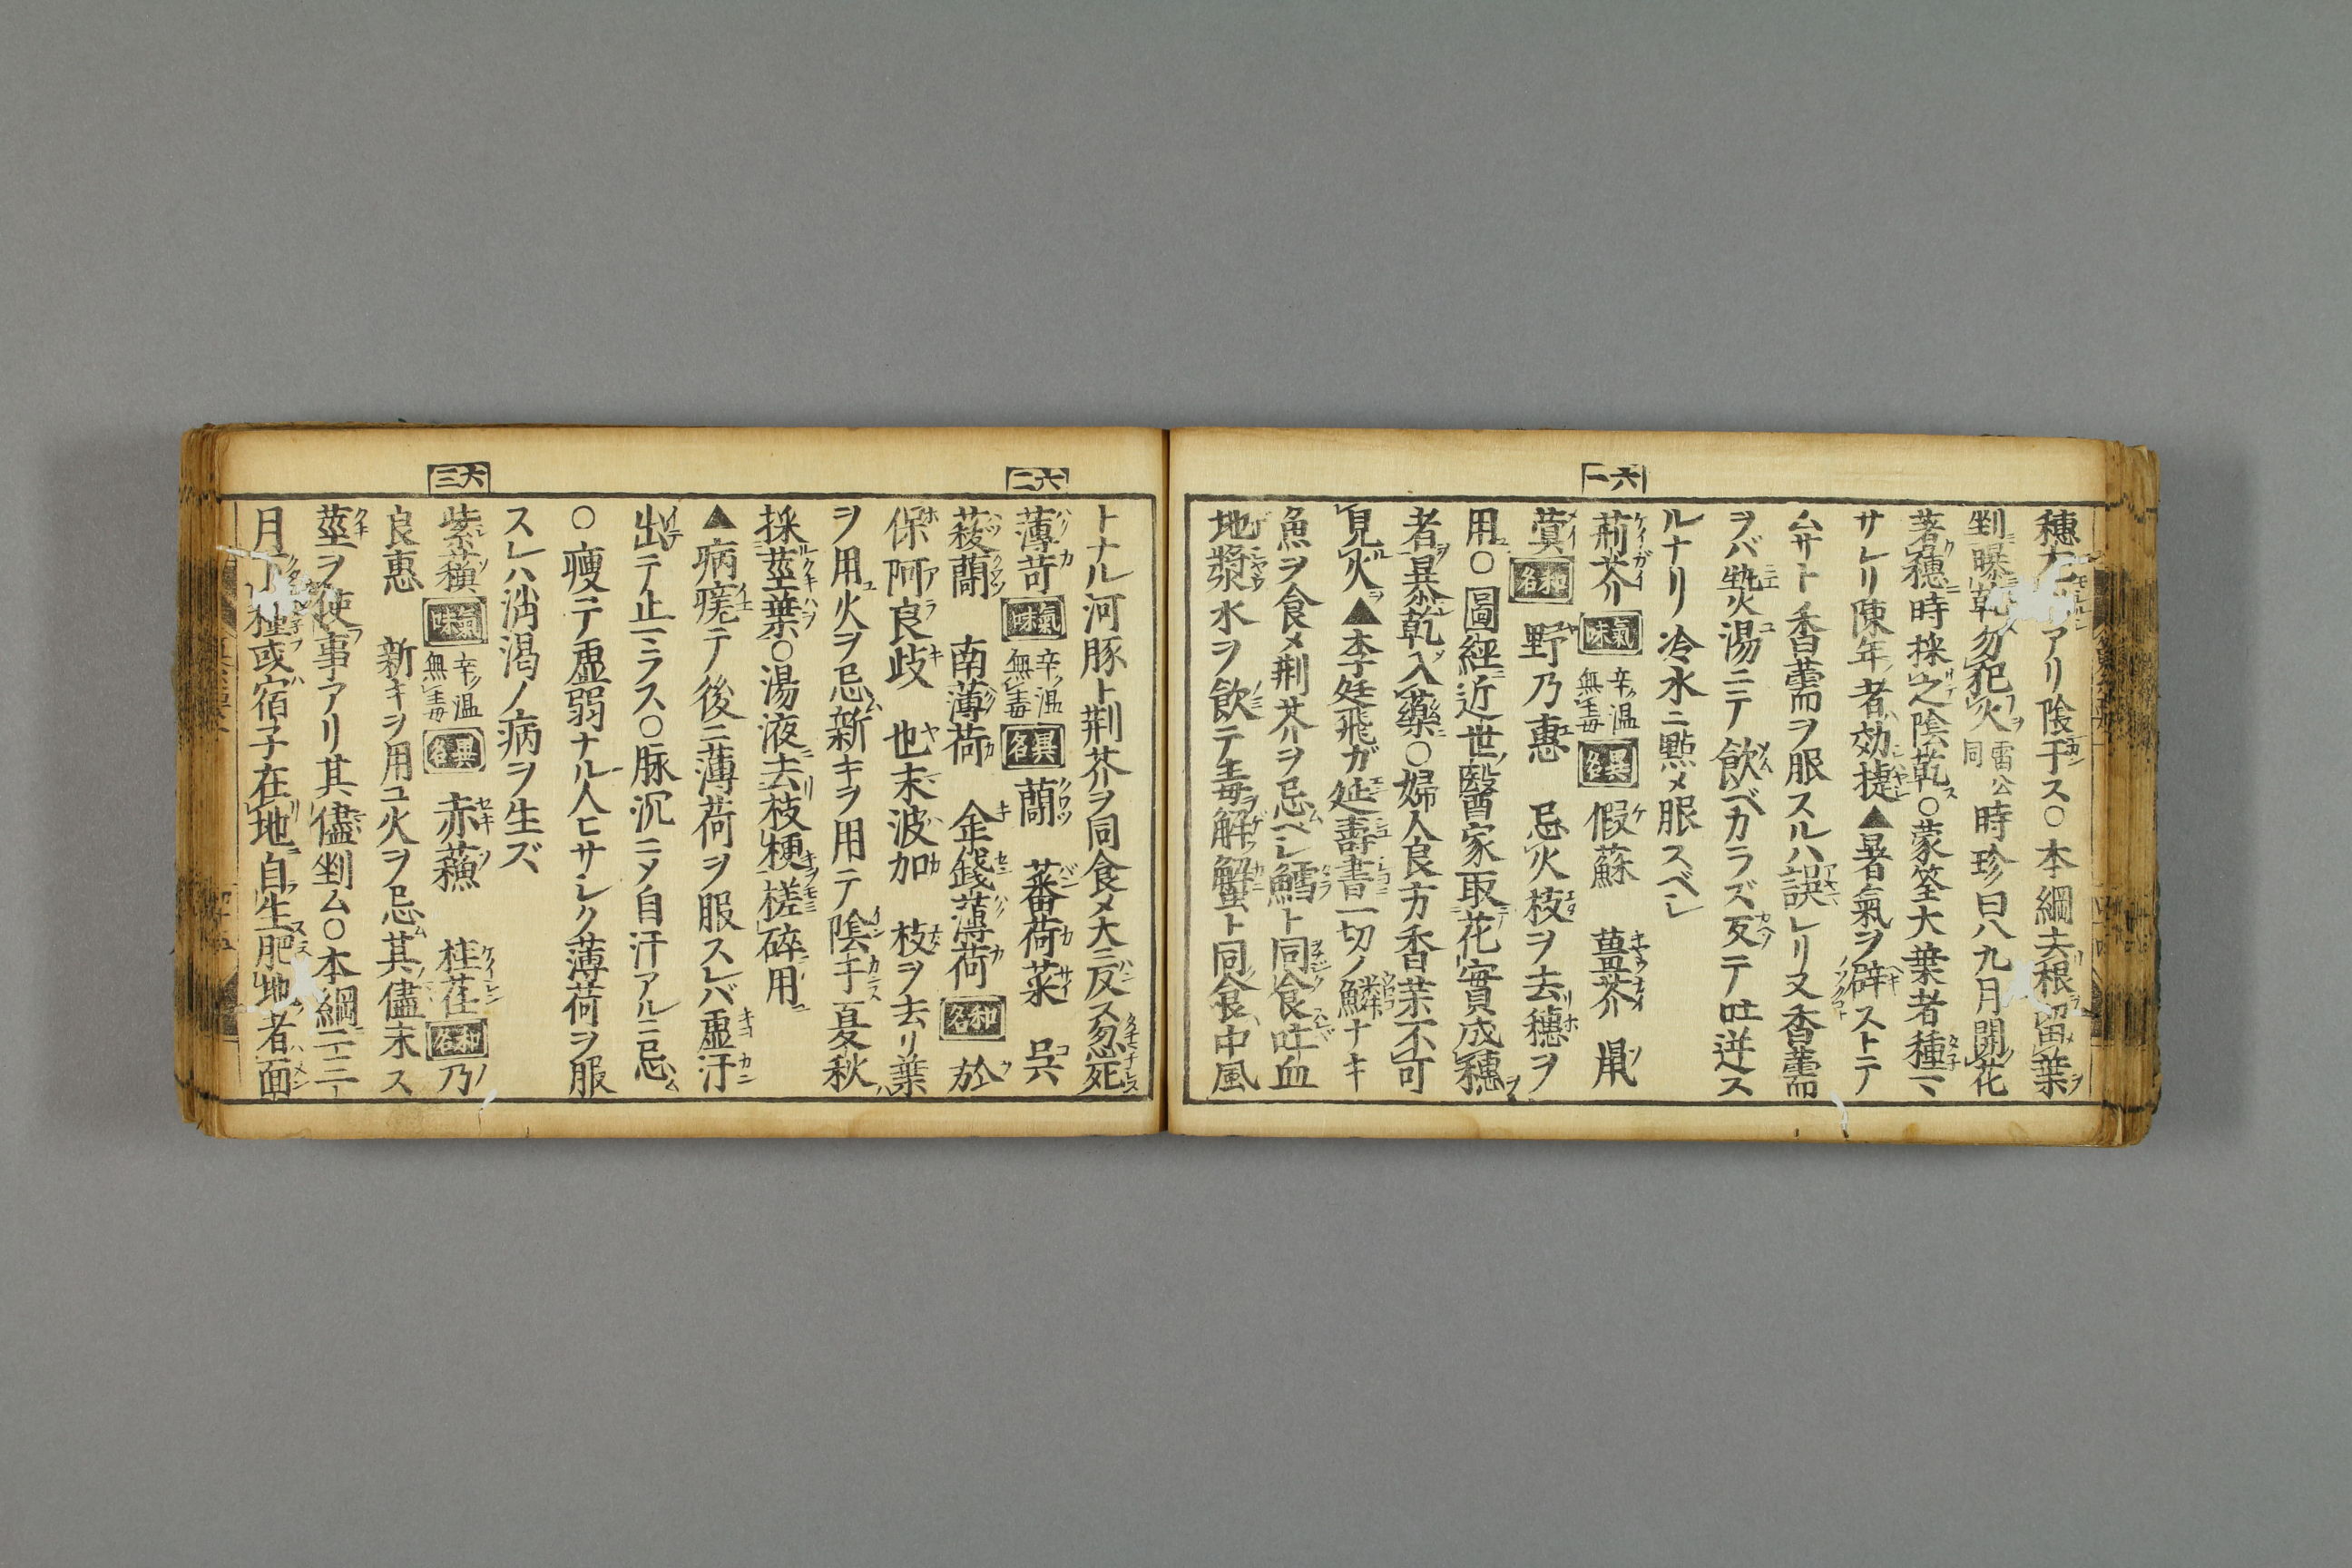 六一
穗 アリ陰干ス○本綱去根留葉
剉曝乾勿犯火雷公同時珍曰八九月開花
著穗時採之陰乾○蒙筌大葉者種
サレリ陳年者効捷▲暑氣ヲ辟ストテ
ムサト香薷ヲ服スルハ誤レリ又香薷
ヲバ熱湯ニテ飲ベカラズ反テ吐逆ス
ルナリ冷水ニ點メ服スベシ
荊芥 氣味 辛温無毒 異名 假蘇 薑芥 鼠
蓂 和名 野乃惠 忌火枝ヲ去穗ヲ
用○圖經近世醫家取花實成穗
者暴乾入藥○婦人良方香茉不可
見火▲李廷飛ガ延壽書一切ノ鱗ナキ
魚ヲ食メ荊芥ヲ忌ベシ鱈ト同食吐血
地漿水ヲ飲テ毒解蟹ト同食中風
六二
六三
トナル河豚ト荊芥ヲ同食メ大ニ反ス忽死
薄苛 氣味 辛温無毒 異名 蘭 蕃荷菜 呉
菝蘭 南薄荷 金錢薄荷 和名 於
保阿良歧 也末波加 枝ヲ去リ葉
ヲ用火ヲ忌新キヲ用テ陰干夏秋
採莖葉○湯液去枝梗搓碎用
▲病瘥テ後ニ薄荷ヲ服スレバ虚汗
出テ止ラス○脉沉ニメ自汗アルニ忌
○瘦テ虚弱ナル人ヒサシク薄荷ヲ服
スレハ消渇ノ病ヲ生ズ
紫蘓 氣味 辛温無毒 異名 赤蘓 桂荏 和名 乃
良惠 新キヲ用ユ火ヲ忌其儘末ス
莖ヲ使事アリ其儘剉ム○本綱二三
月下種或宿子在地自生肥地者面